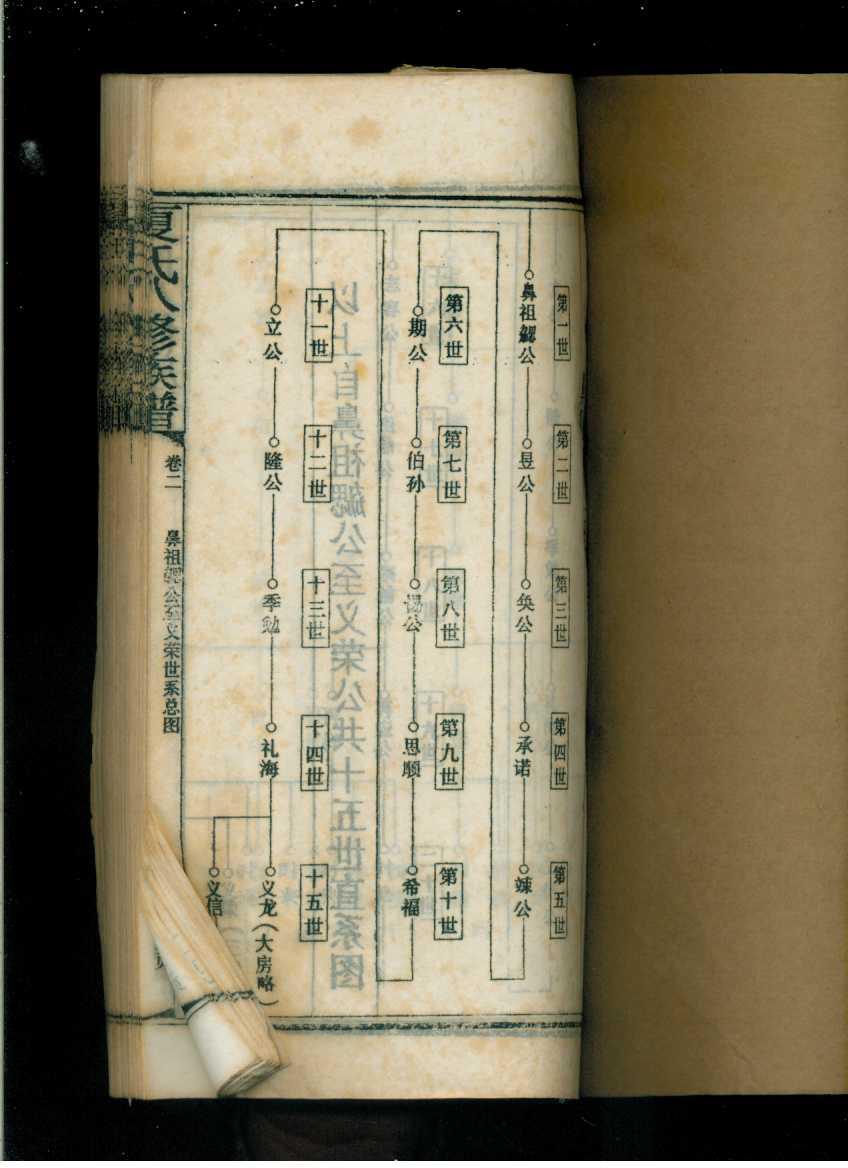 第一世
第二世
第三世
第四世
第五世
鼻祖鳃公
昱公
奂公
承诺
竦公
第六世
第七世
第八世
第九世
第十世
期公
伯孙
公
思顺
希福
十一世
十二世
十三世
十四世
十五世
立公
隆公
季勉
礼海
义龙(大房略)
义信
夏氏八修族谱
卷二
鼻祖鳃公至义荣世系总图
以上自鼻祖鳃公至义荣公共十五世直系图